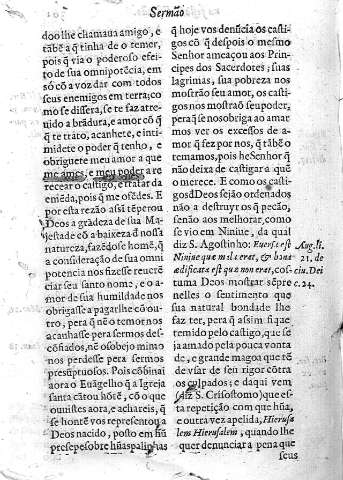 Sermão
doo lhe chamaua amigo, e
tãbẽ a q̃ tinha de o temer,
pois q̃ via o poderoso efei-
to de sua omnipotẽcia, em
só cõ a voz dar com todos
seus enemigos em terra; co-
mo se dissera, se te faz atre-
uido a brãdura, e amor cõ q̃
te trato, acanhete, e inti-
midete o poder q̃ tenho, e
obriguete meu amor a que
me ames, e meu poder a re-
recear o castigo, e tratar da
emẽda, pois q̃ me ofẽdes. E
por esta rezão assi tẽperou
Deos a grãdeza de sua Ma-
jestade cõ a baixeza dª nossa
natureza, fazẽdose homẽ, q̃
a consideração de sua omni
potencia nos fizesse reuerẽ
ciar seu santo nome, e o a-
mor de sua humildade nos
obrigasse a pagarlhe cõ ou-
tro, pera q̃ nẽ o temor nos
acanhasse pera sermos des-
cõfiados, nẽ o sobejo mimo
nos perdesse pera sermos
presũptuosos. Pois cõbinai
aora o Euãgelho q̃ a Igreja
santa cãtou hõtẽ, cõ o que
ouuistes aora, e achareis, q̃
se hontẽ vos representou a
Deos nacido, posto em hũ
presepe sobre hũas palinhas
q̃ hoje vos denũcia os casti-
gos cõ q̃ despois o mesmo
Senhor ameaçou aos Prin-
cipes dos Sacerdotes; suas
lagrimas, sua pobreza nos
mostrão seu amor, os casti-
gos nos mostrão seu poder,
pera q̃ se nos obriga ao amar
mos ver os excessos de a-
mor q̃ fez por nos, q̃ tãbẽ o
temamos, pois he Senhor q̃
não deixa de castigar a quẽ
o merece. E como os casti-
gos dDeos sejão ordenados
não a destruyr os q̃ pecão,
senão aos melhorar, como
se vio em Niniue, da qual
diz S. Agostinho: Euersa est
Niniue quæ mala erat, & bona
ædificata est quæ non erat, cos-
tuma Deos mostrar sẽpre
nelles o sentimento que
sua natural bondade lhe
faz ter, pera q̃ assim fique
temido pelo castigo, que se
ja amado pela pouca vonta
de, e grande magoa que tẽ
de vsar de seu rigor cõtra
os culpados; e daqui vem
(diz S. Crisostomo) que es-
ta repetição com que hũa,
e outra vez apelida, Hierusa
lem Hierusalem, quando lhe
quer denunciar a pena que
seus
Aug. li.
21. de
ciu. Dei
c. 24.